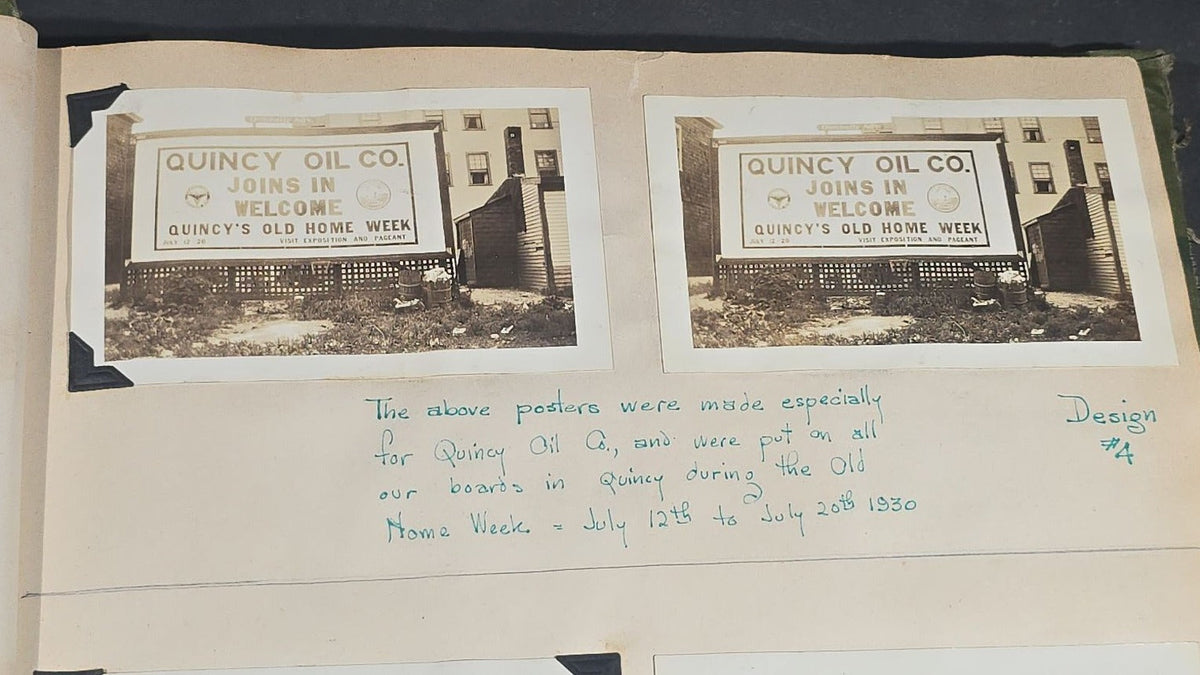 QUINCY OIL CO.
JOINS IN
WELCOME
QUINCY'S OLD HOME WEEK
JULY 12-20 VISIT EXPOSITION AND PAGEANT
QUINCY OIL CO.
JOINS IN
WELCOME
QUINCY'S OLD HOME WEEK
JULY 12-20 VISIT EXPOSITION AND PAGEANT
The above posters were made especially
for Quincy Oil Co., and were put on all
our boards in Quincy during the Old
Home Week = July 12th to July 20th 1930
Design
#4